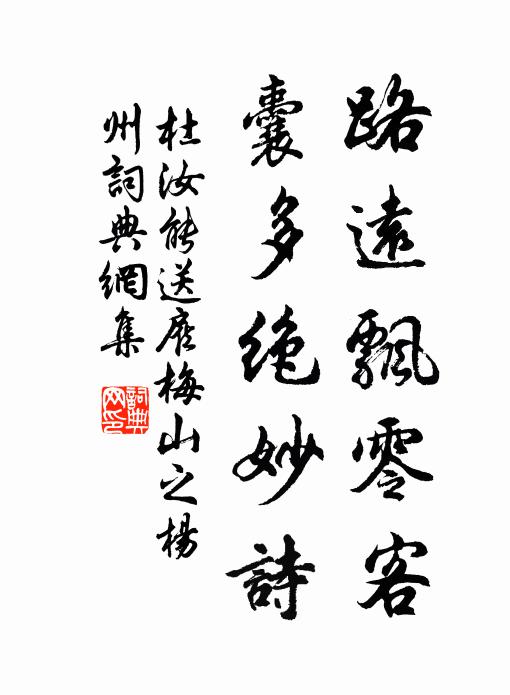 路遠飄零客
囊多绝妙詩
杜汝能送應梅山之楊
州詞典網集
詞典
网印